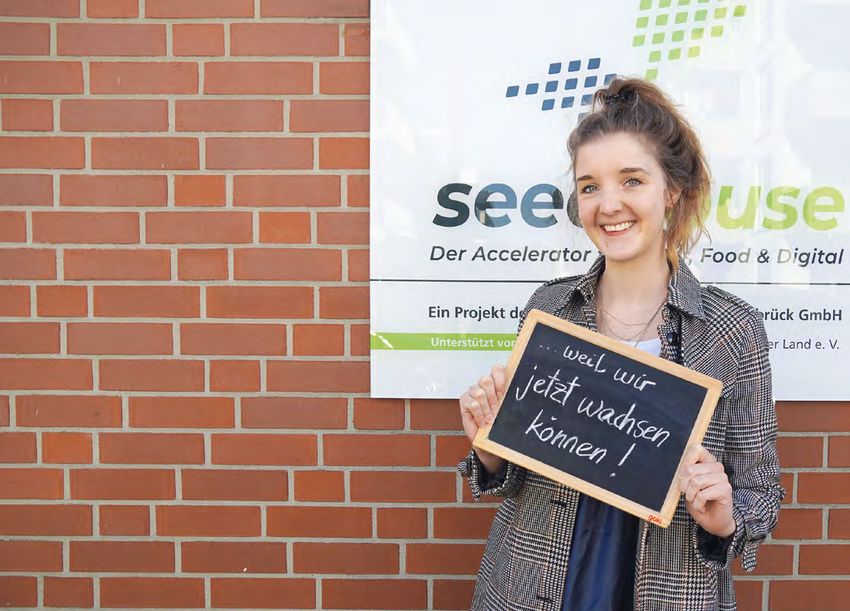 see use
Der Accelerator Food & Digital
Ein Projekt brück GmbH
Unterstützt er Land e. V.
... weil wir
jetzt wachsen
können!
goki